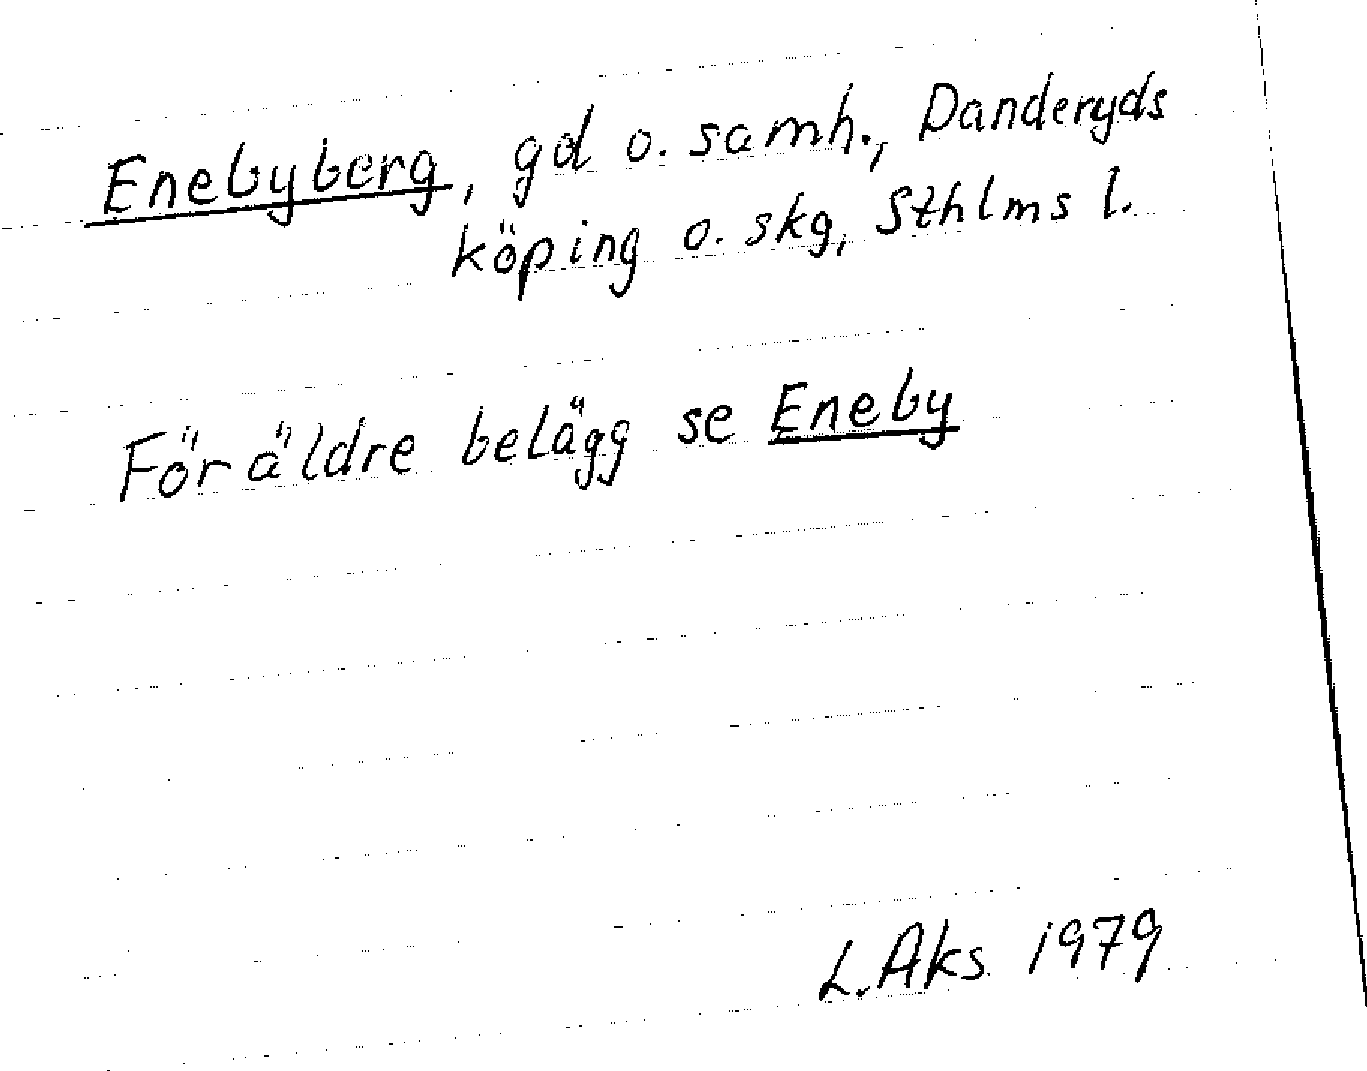 Enebyberg, gd o. samh., Danderyds
köping o. skg, Sthlms l.
För äldre belägg se Eneby
L. Aks 1979